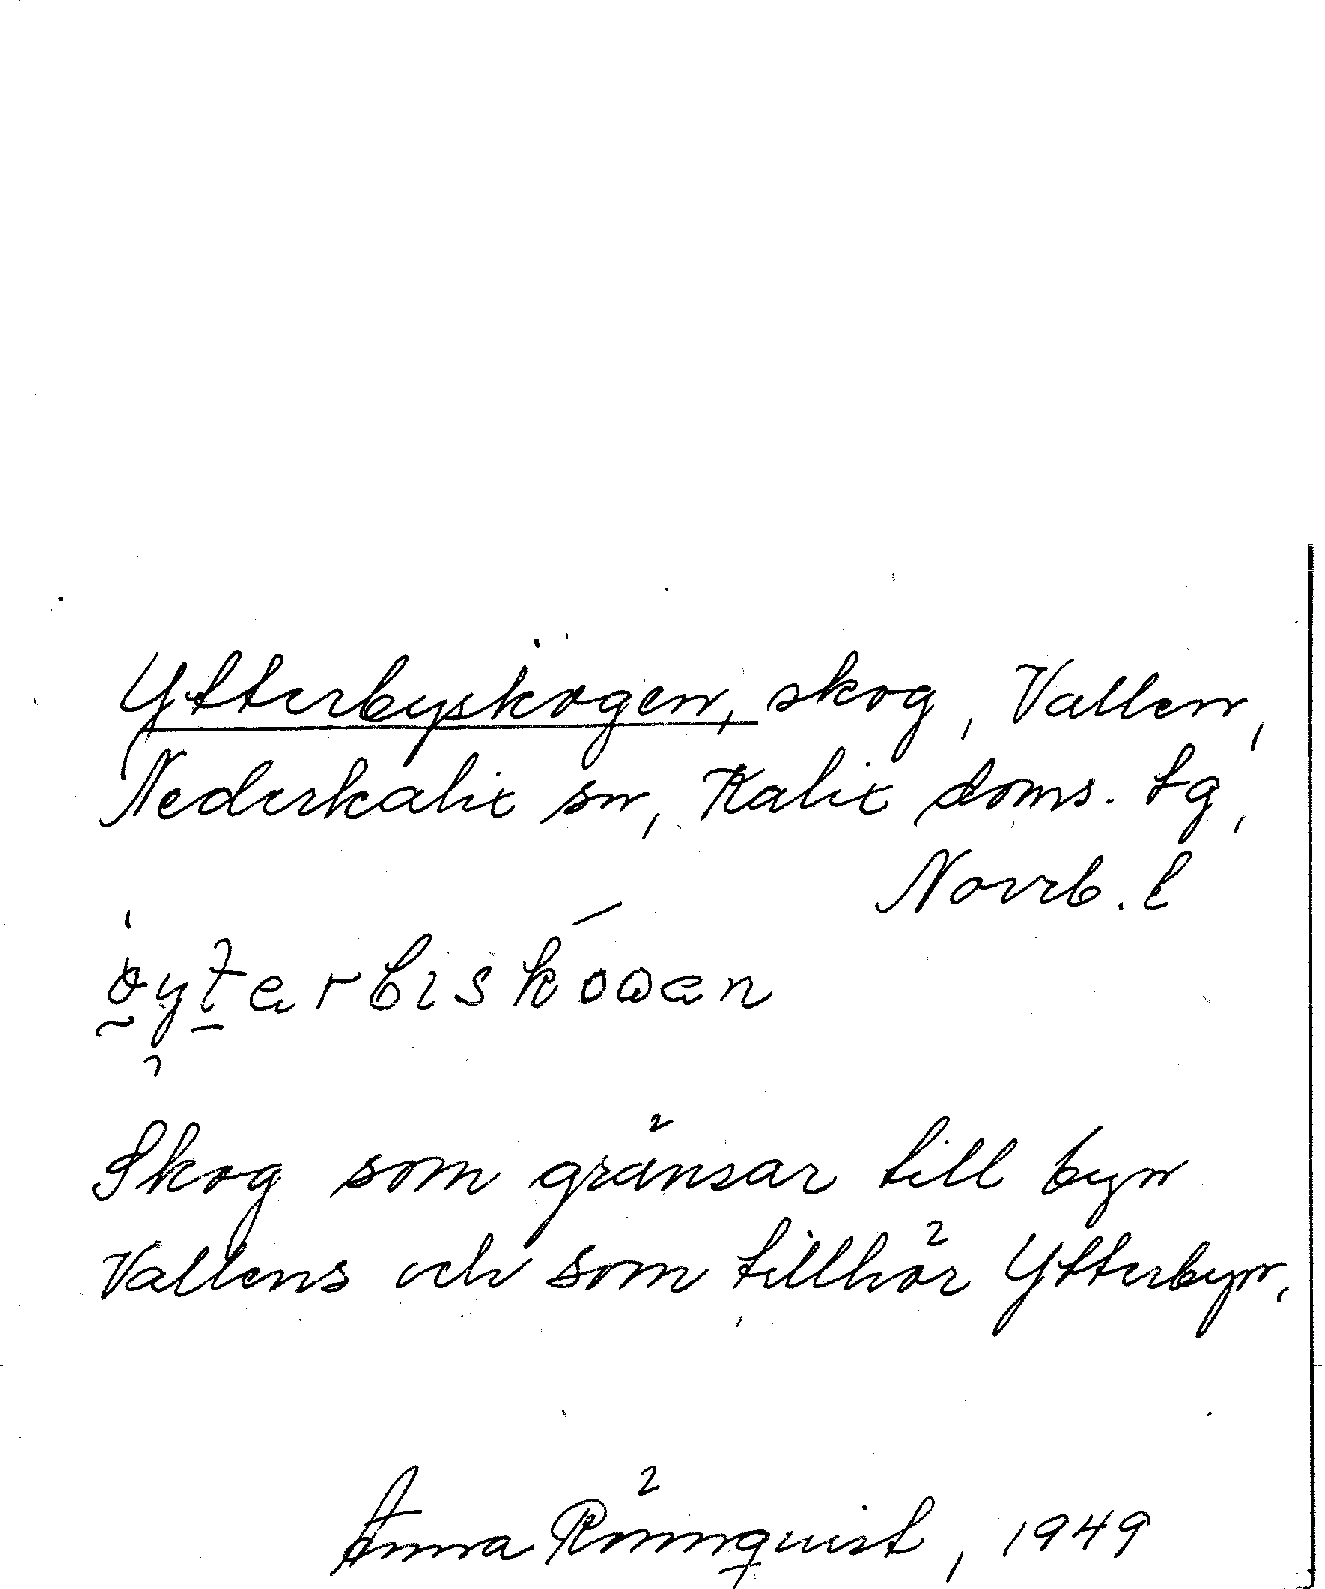 Ytterbyskogen, skog, Vallen,
Nederkalix sn, Kalix doms. tg,
Norrb. l
Skog som gränsar till byn
Vallens och som tillhör Ytterbyn.
Anna Rönnquist, 1949